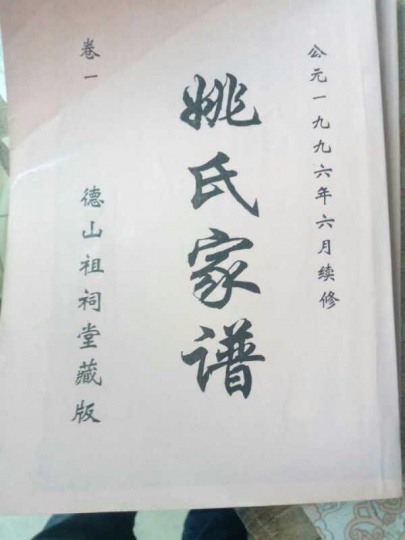 公元一九九六年六月续修
姚氏家谱
卷一
德山祖祠堂藏版